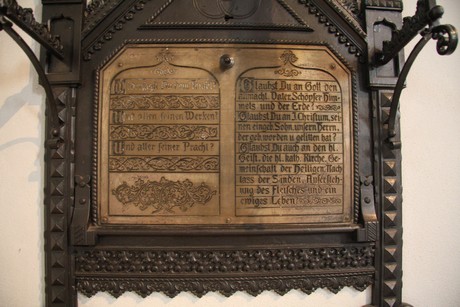 Und allen seinen Werken!
Und aller seiner Pracht?
Glaubst Du an Gott den
allmächt. Vater, Schöpfer Him-
mels und der Erde?
Glaubst Du an J. Christum, sei-
nen eingeb. Sohn, unsern Herrn,
der geb. worden u. gelitten hat?
Glaubst Du auch an den hl.
Geist, die hl. kath. Kirche, Ge-
meinschaft der Heiligen, Nach
lass der Sünden, Aufersteh
ung des Fleisches und ein
ewiges Leben?